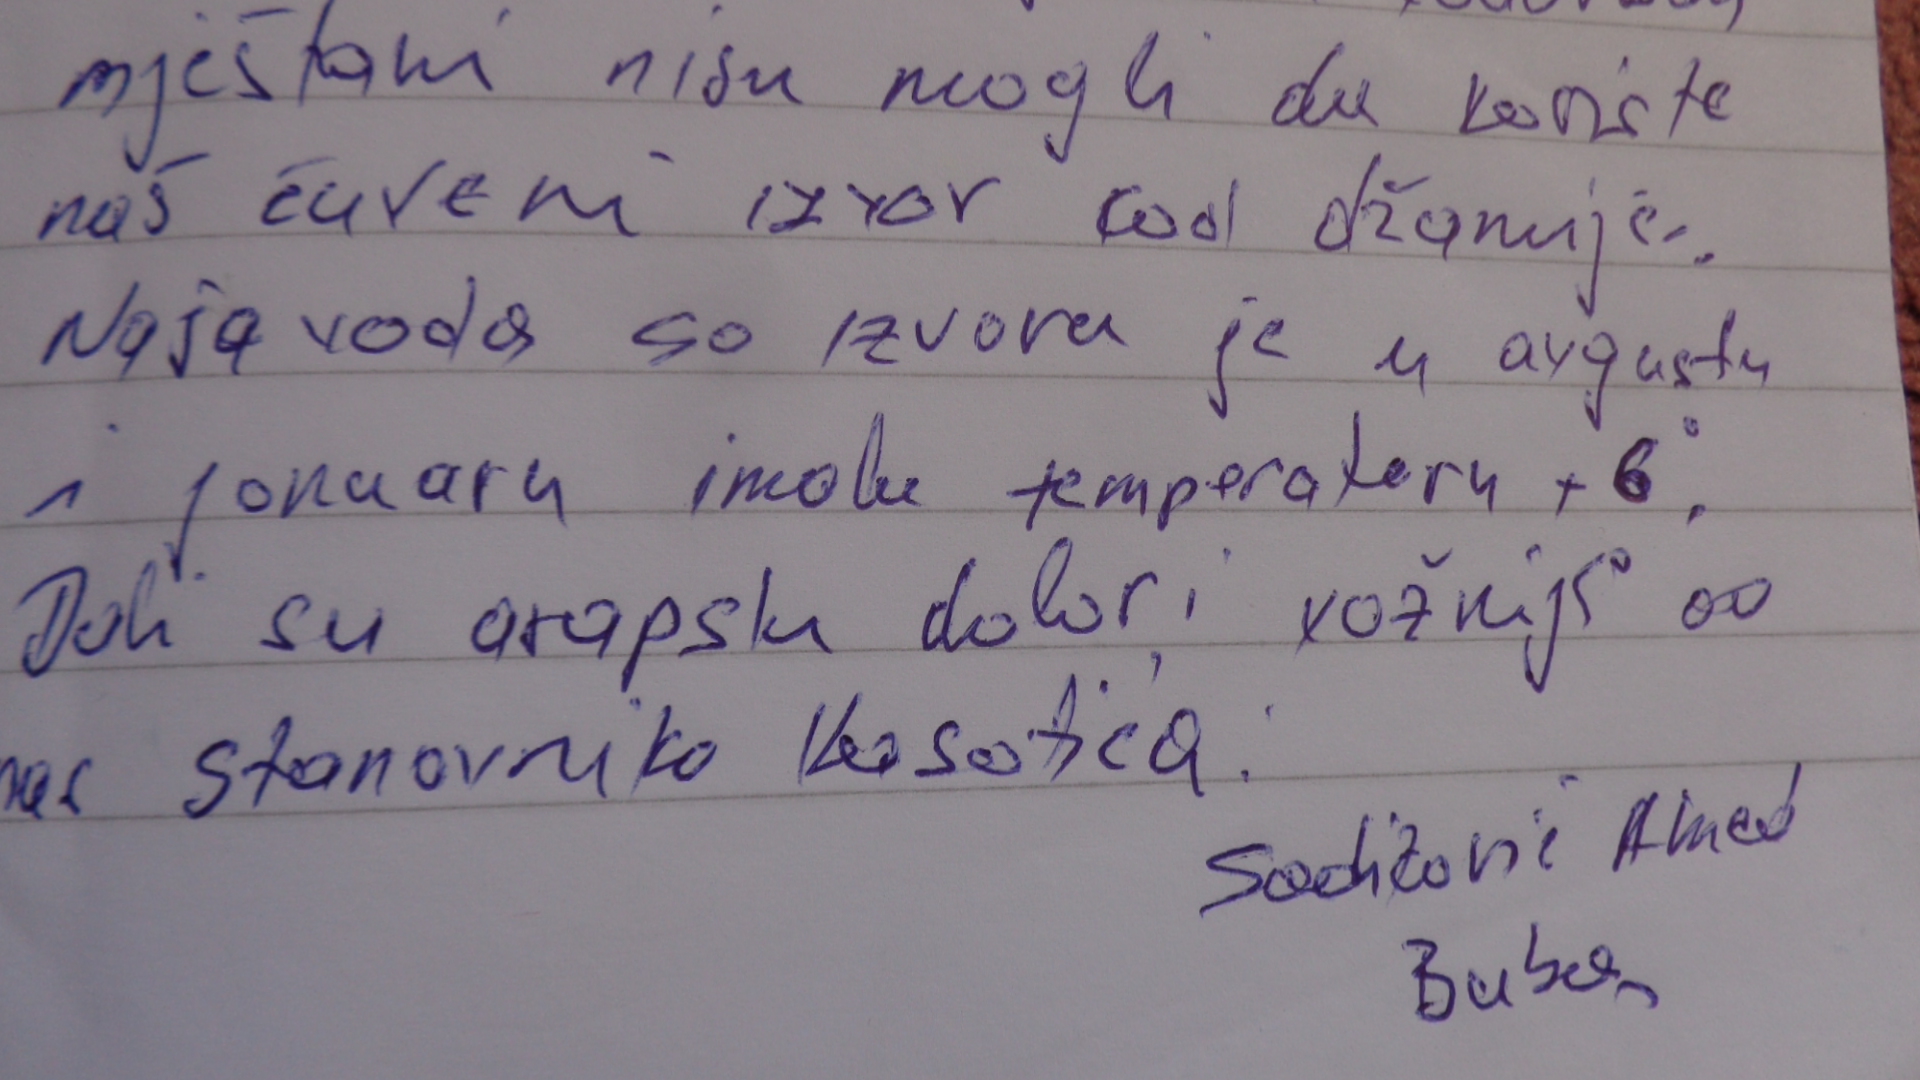 mještani nisu mogli da koriste
naš čuveni izvor kod džamije.
Naša voda sa izvora je u avgustu
i januaru imala temperaturu +6°.
Dali su arapski dolari važniji od
nas stanovnika Kosatica.
Sadiković Ahmed